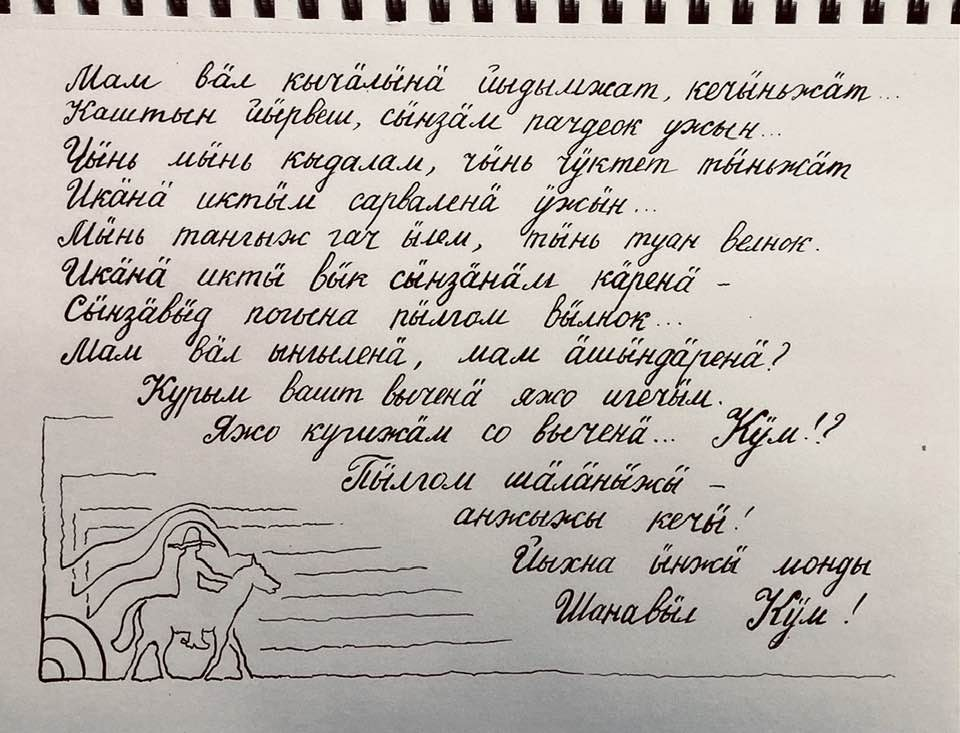 Мам вӓл кычӓлӹнӓ йыдымжат, кечӹньжӓт...
Каштын йӹрвеш, сӹнзӓм пачдеок ужын...
Цӹнь мӹнь кыдалам, чӹнь чӱктет тӹньжӓт
Икӓнӓ иктӹм сарваленӓ ӱжӹн...
Мӹнь тангыж гач ӹлем, тӹнь туан велнок.
Икӓнӓ иктӹ вӹк сӹнзӓнӓм кӓренӓ –
Сӹнзӓвӹд погына пӹлгом вӹлнок...
Мам вӓл ынгыленӓ, мам ӓшӹндӓренӓ?
Курым вашт выченӓ яжо игечӹм.
Яжо кугижӓм со выченӓ... Кӱм!?
Пӹлгом шӓлӓнӹжӹ –
анжыжы кечӹ!
Йыхна ӹнжӹ монды
Шанавӹл Кӱм!